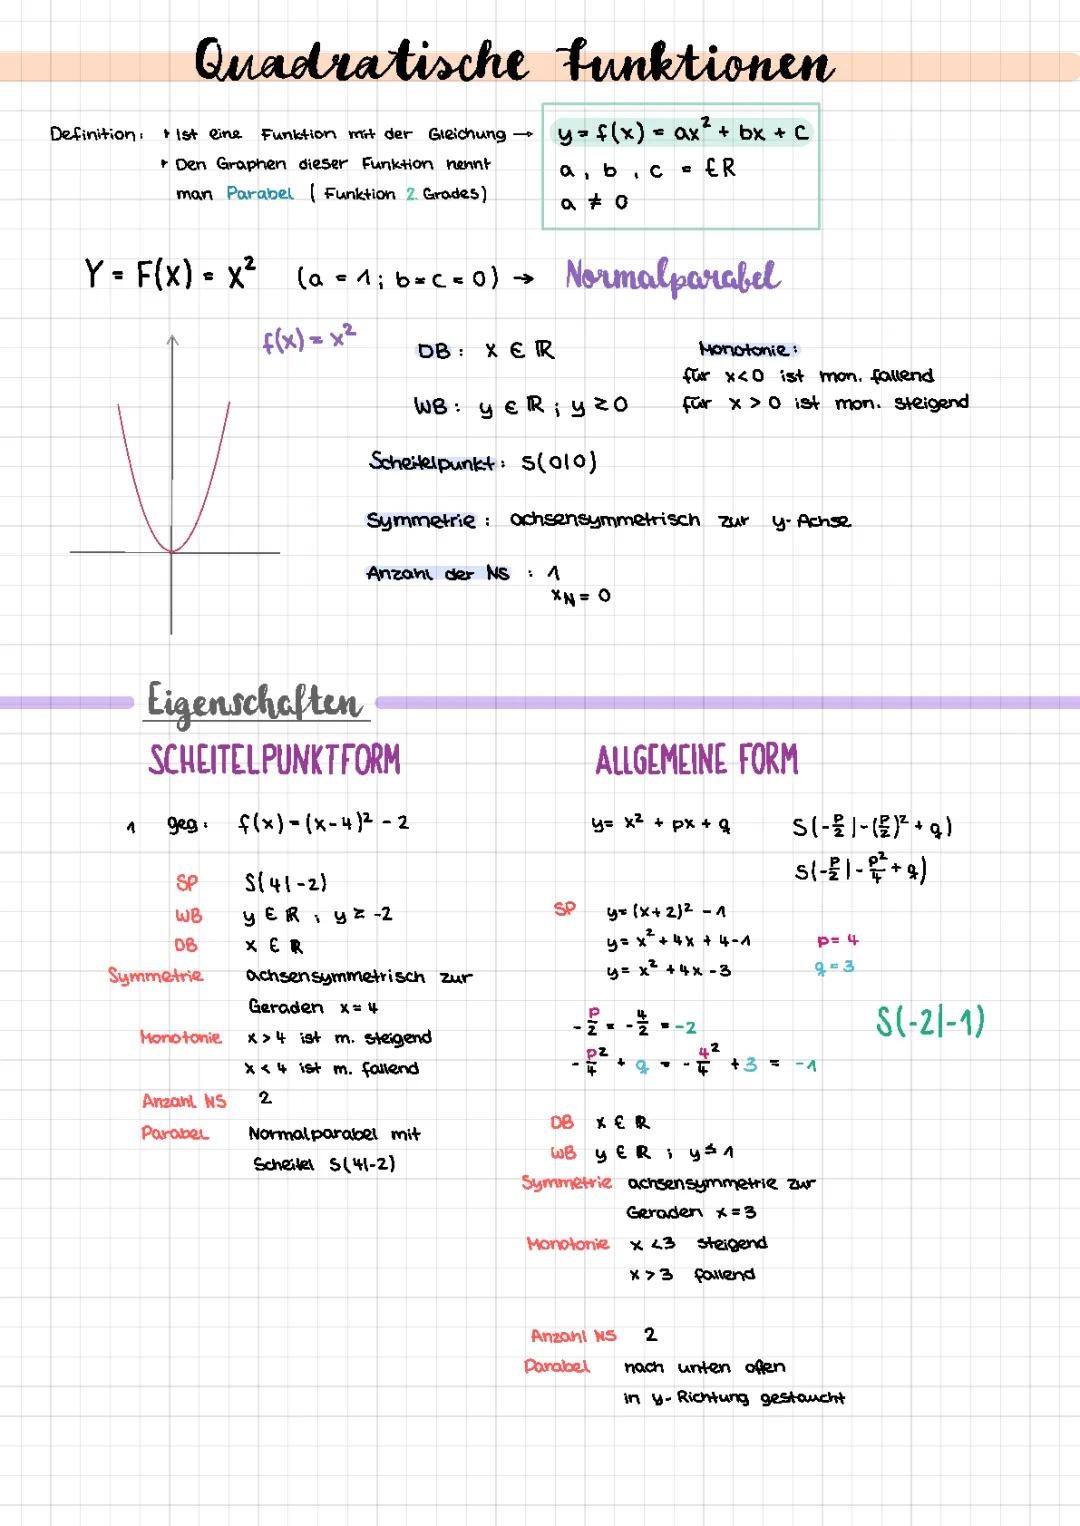 Quadratische Funktionen
Definition: Ist eine Funktion mit der Gleichung → y = f(x) = ax² + bx + c
Den Graphen dieser Funktion nennt
man Parabel ( Funktion 2. Grades)
a, b, c = ∈ R
a ≠ 0
Y = F(x) = x² (a = 1; b = c = 0) → Normalparabel
f(x) = x²
DB: x ∈ ℝ
WB: y ∈ ℝ ; y ≥ 0
Monotonie:
für x<0 ist mon. fallend
für x > 0 ist mon. steigend
Scheitelpunkt: S(0|0)
Symmetrie: achsensymmetrisch zur y-Achse
Anzahl der NS : 1
xN = 0
Eigenschaften
SCHEITELPUNKTFORM
1 geg: f(x) = (x-4)² - 2
SP S(4|-2)
WB y ∈ ℝ ; y ≥ -2
DB x ∈ ℝ
Symmetrie achsensymmetrisch zur
Geraden x = 4
Monotonie x > 4 ist m. steigend
x < 4 ist m. fallend
Anzahl NS 2
Parabel Normalparabel mit
Scheitel S(4|-2)
ALLGEMEINE FORM
y= x² + px + q S(-p/2 | -(p/2)² + q)
S(-p/2 | -p²/4 + q)
SP y= (x+2)² - 1
y= x² + 4x + 4-1 p= 4
y= x² + 4x - 3 q = 3
-p/2 = -4/2 = -2 S(-2|-1)
-p²/4 + q = -4²/4 + 3 = -1
DB x ∈ ℝ
WB y ∈ ℝ ; y ≤ 1
Symmetrie achsensymmetrie zur
Geraden x = 3
Monotonie x < 3 steigend
x > 3 fallend
Anzahl NS 2
Parabel nach unten offen
in y-Richtung gestaucht